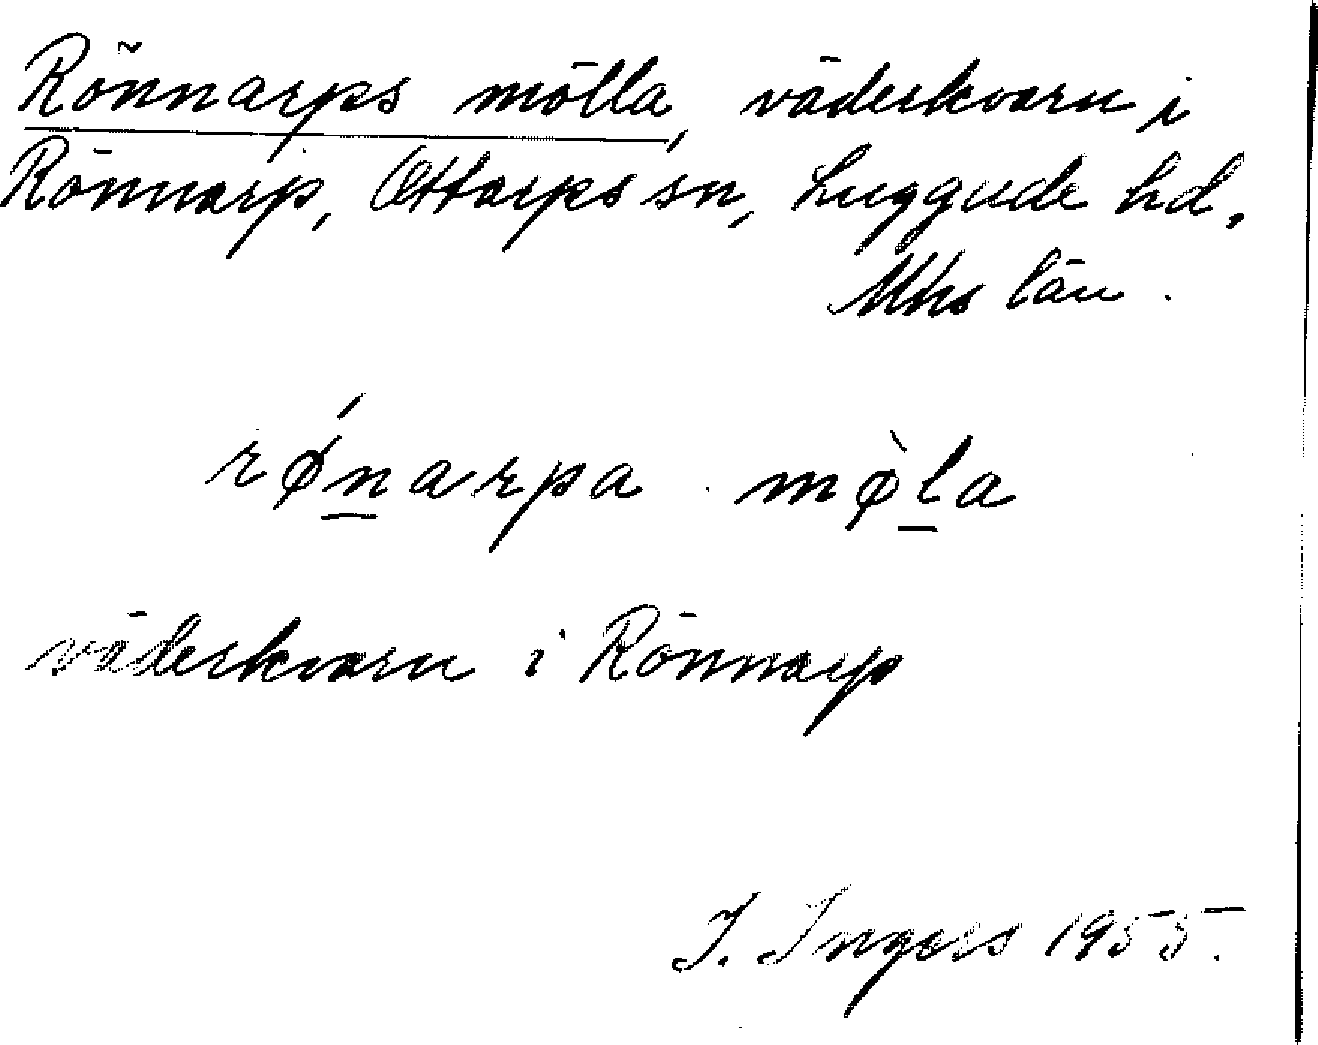 Rönnarps mölla, väderkvarn i
Rönnarp, Ottarps sn, Luggude hd,
Mhs län.
rǿn̲arpa mø̀l̲a
väderkvarn i Rönnarp
I. Ingers 1955.